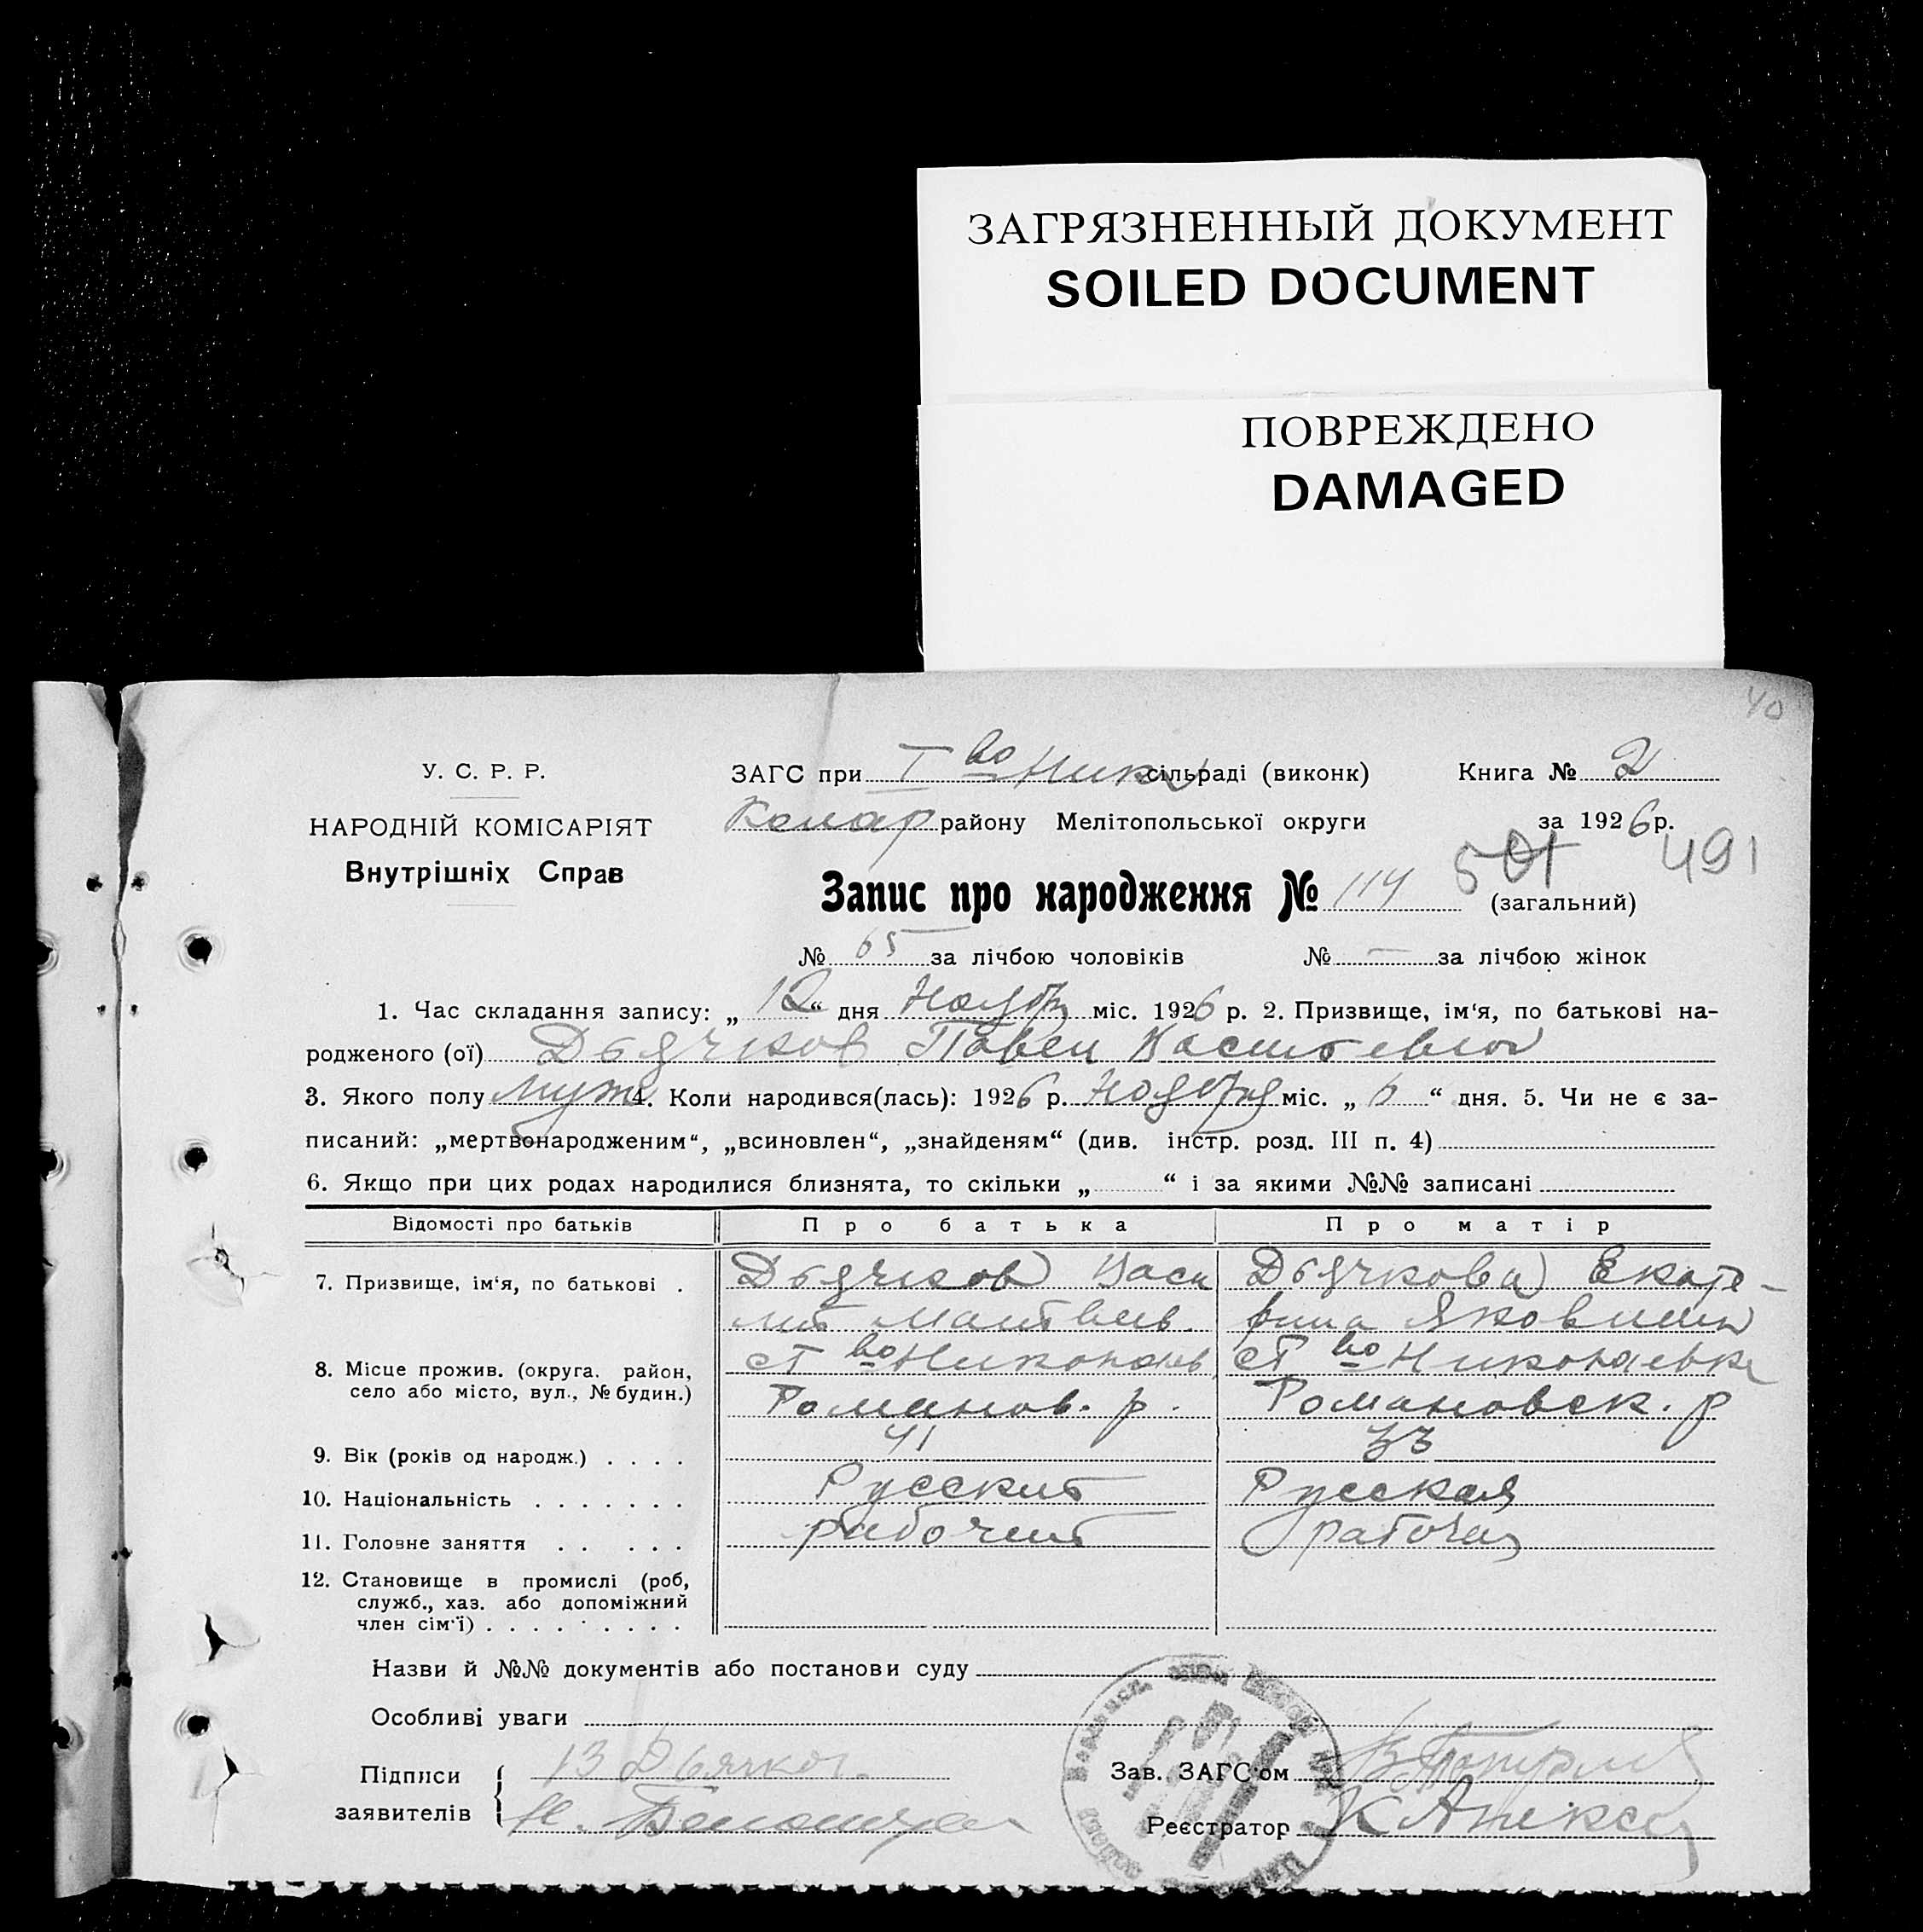 ЗАГРЯЗНЕННЫЙ ДОКУМЕНТ
SOILED DOCUMENT
ПОВРЕЖДЕНО
DAMAGED
40
У. С. Р. Р.
НАРОДНІЙ КОМІСАРІЯТ
Внутрішніх Справ
ЗАГС при Т во Ник сільраді (виконк) Книга № 2
району Мелітопольської округи за 1926 р.
501 491
Запис про народження № 114 (загальний)
№ 65 за лічбою чоловіків № — за лічбою жінок
1. Час складання запису: „ 12 “ дня Нояб міс. 1926 р. 2. Призвище, ім'я, по батькові на-
родженого (ої) Дьячков Павел Васильевич
3. Якого полу муж 4. Коли народився(лась): 1926 р. Ноября міс. „ 6 “ дня. 5. Чи не є за-
писаний: „мертвонародженим“, „всиновлен“, „знайденям“ (див. інстр. розд. III п. 4)
6. Якщо при цих родах народилися близнята, то скільки „ “ і за якими №№ записані
Відомості про батьків Про батька Про матір
7. Призвище, ім'я, по батькові . Дьячков Васи Дьячкова Екате-
лий Матвеев. рина Яковлевна
8. Місце прожив. (округа, район, село або місто, вул., № будин.) ст во Николаев ст во Николаевка
Романов. р. Романовск. р
9. Вік (років од народж.) . . . . 41 33
10. Національність . . . . . . . Русский Русская
11. Головне заняття . . . . . рабочий рабочая
12. Становище в промислі (роб,
служб., хаз. або допоміжний
член сім'ї) . . . . . . . . .
Назви й №№ документів або постанови суду
Особливі уваги
Підписи заявителів Дьячков. Зав. ЗАГС'ом
Н. Реєстратор К